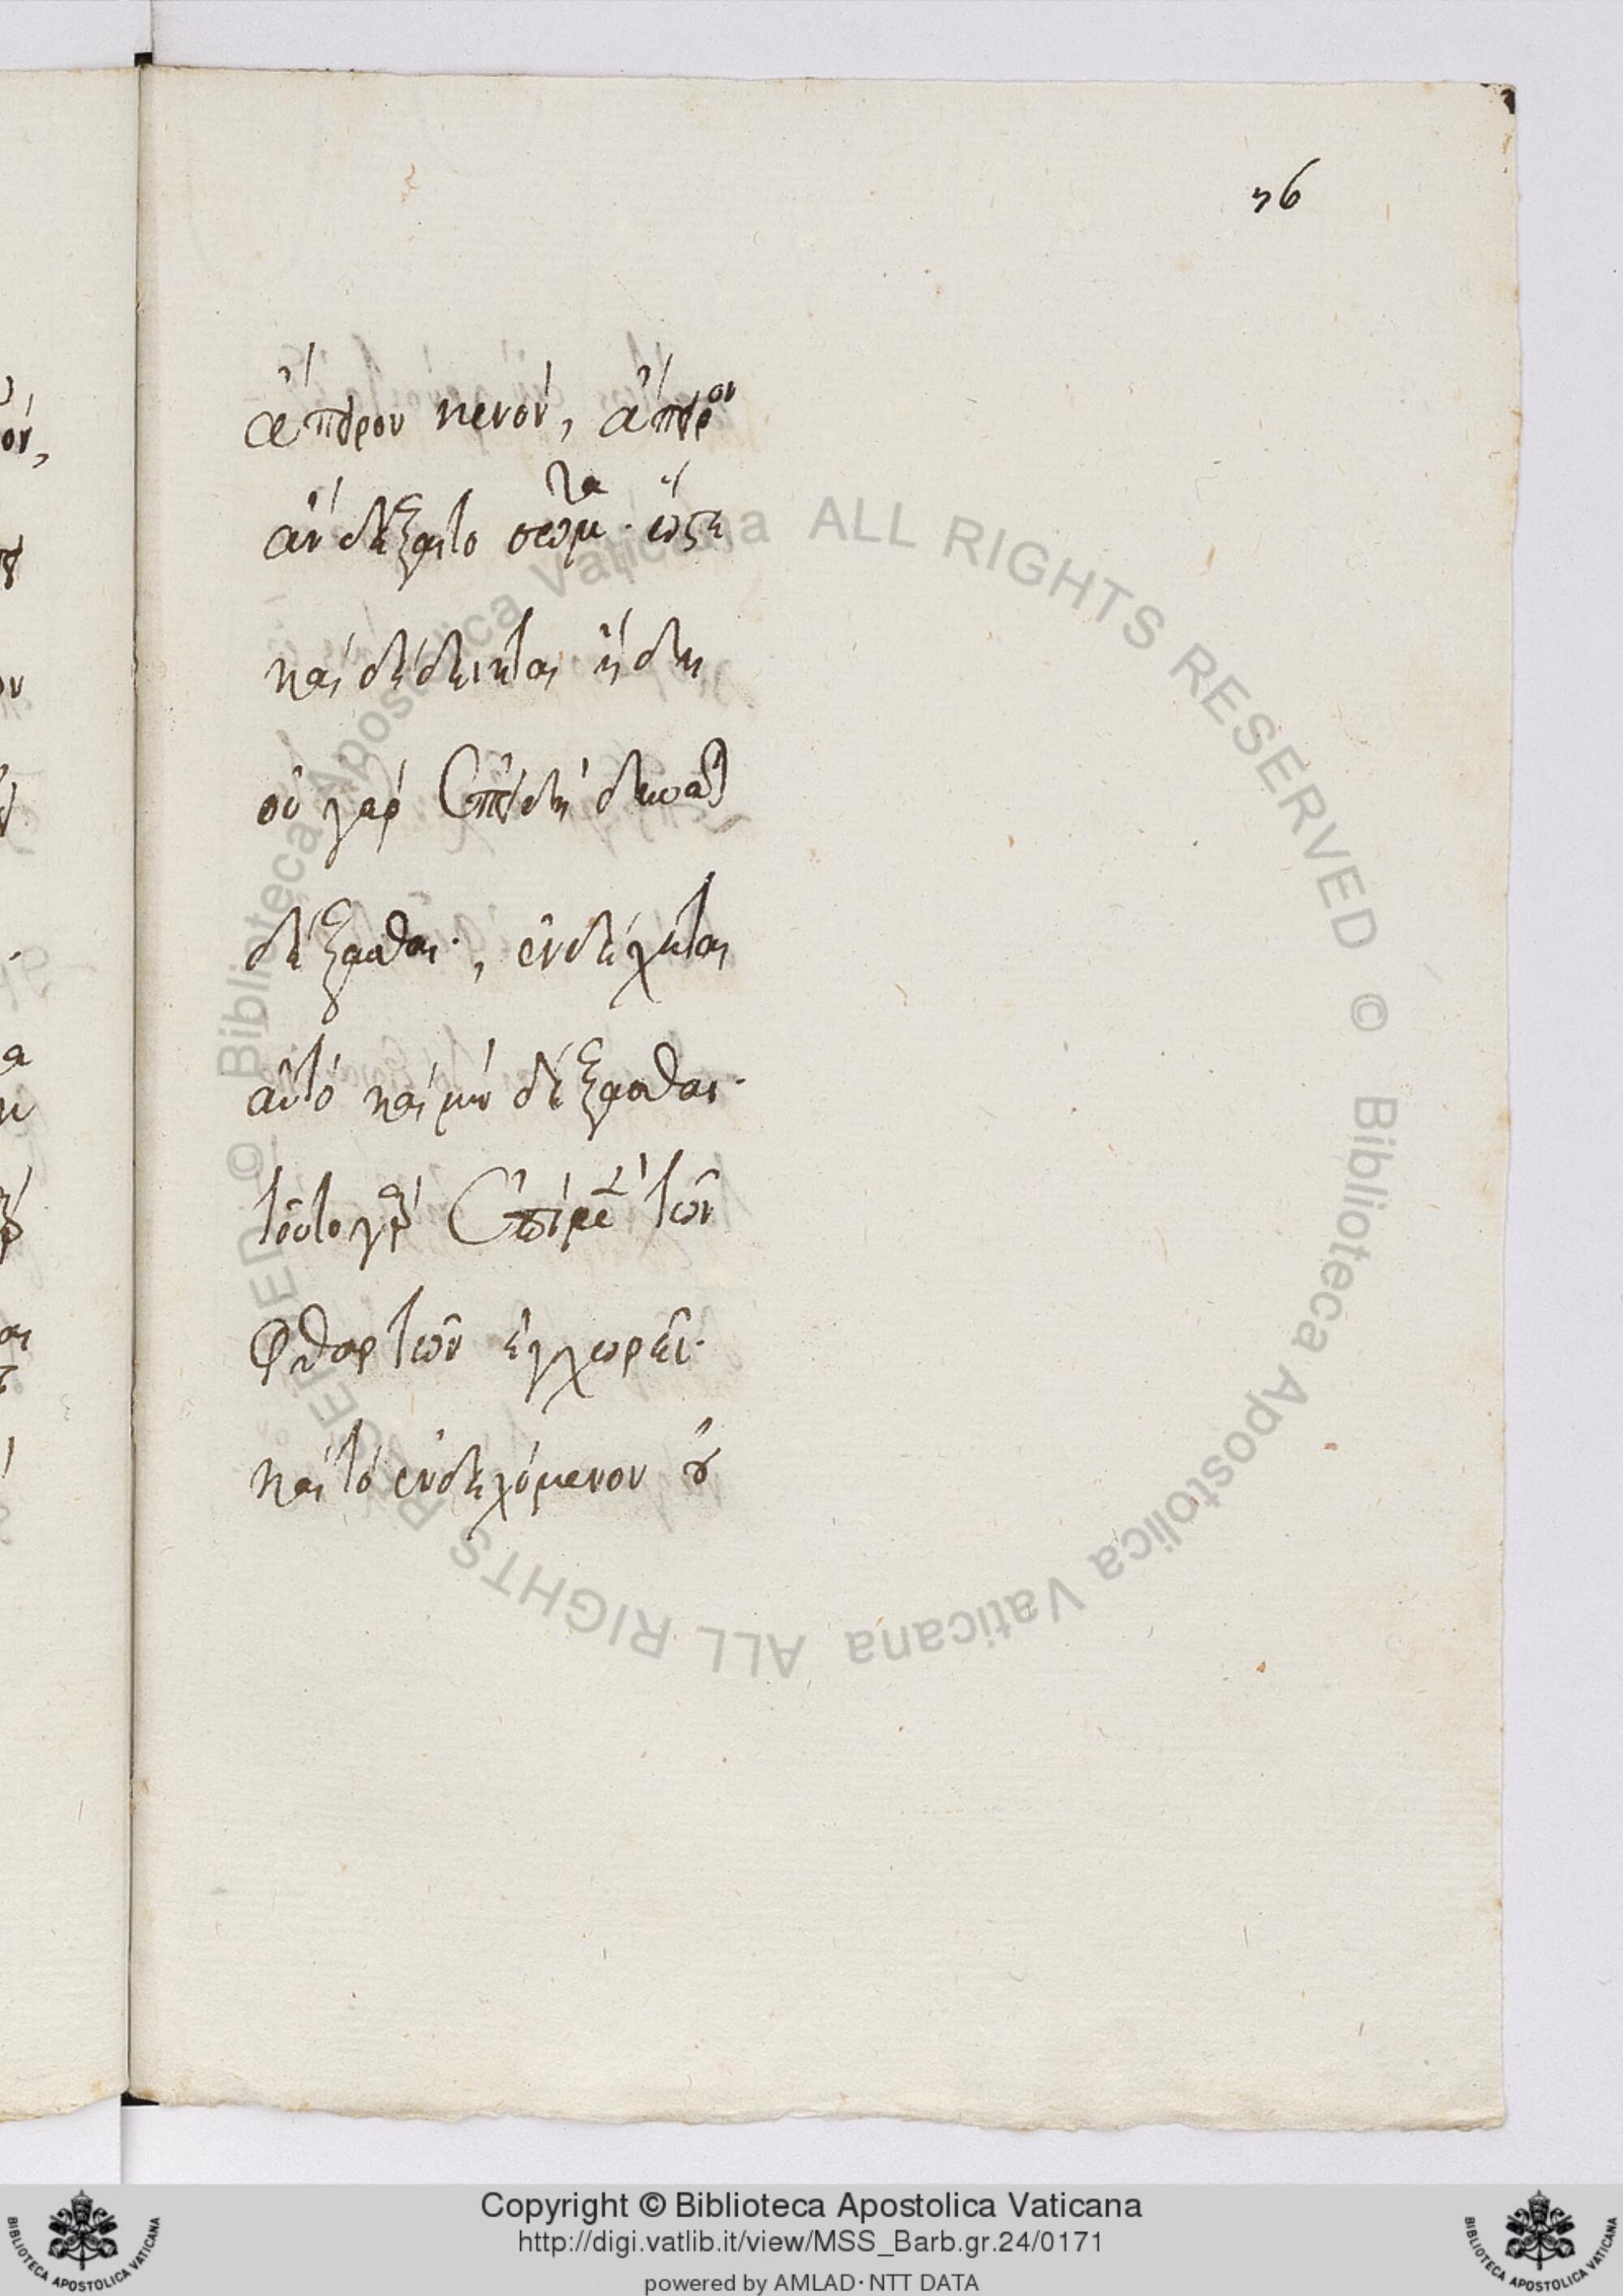 76
ἄπειρον κενόν, ἄπειρον
ἂν δέξαιτο σῶμα. ὥστε
καὶ δέδεικται ἤδη
οὐ γὰρ ἐπειδὴ
δέξασθαι, ἐνδέχεται
αὐτὸ καὶ μὴ δέξασθαι.
τοῦτο γὰρ ἐπὶ μὲν τῶν
φθαρτῶν ἐγχωρεῖ.
καὶ τὸ ἐνδεχόμενον οὐ
© Biblioteca Apostolica Vaticana ALL RIGHTS RESERVED © Biblioteca Apostolica Vaticana ALL RIGHTS RESERVED
Copyright © Biblioteca Apostolica Vaticana
http://digi.vatlib.it/view/MSS_Barb.gr.24/0171
powered by AMLAD·NTT DATA
BIBLIOTECA APOSTOLICA VATICANA
BIBLIOTECA APOSTOLICA VATICANA